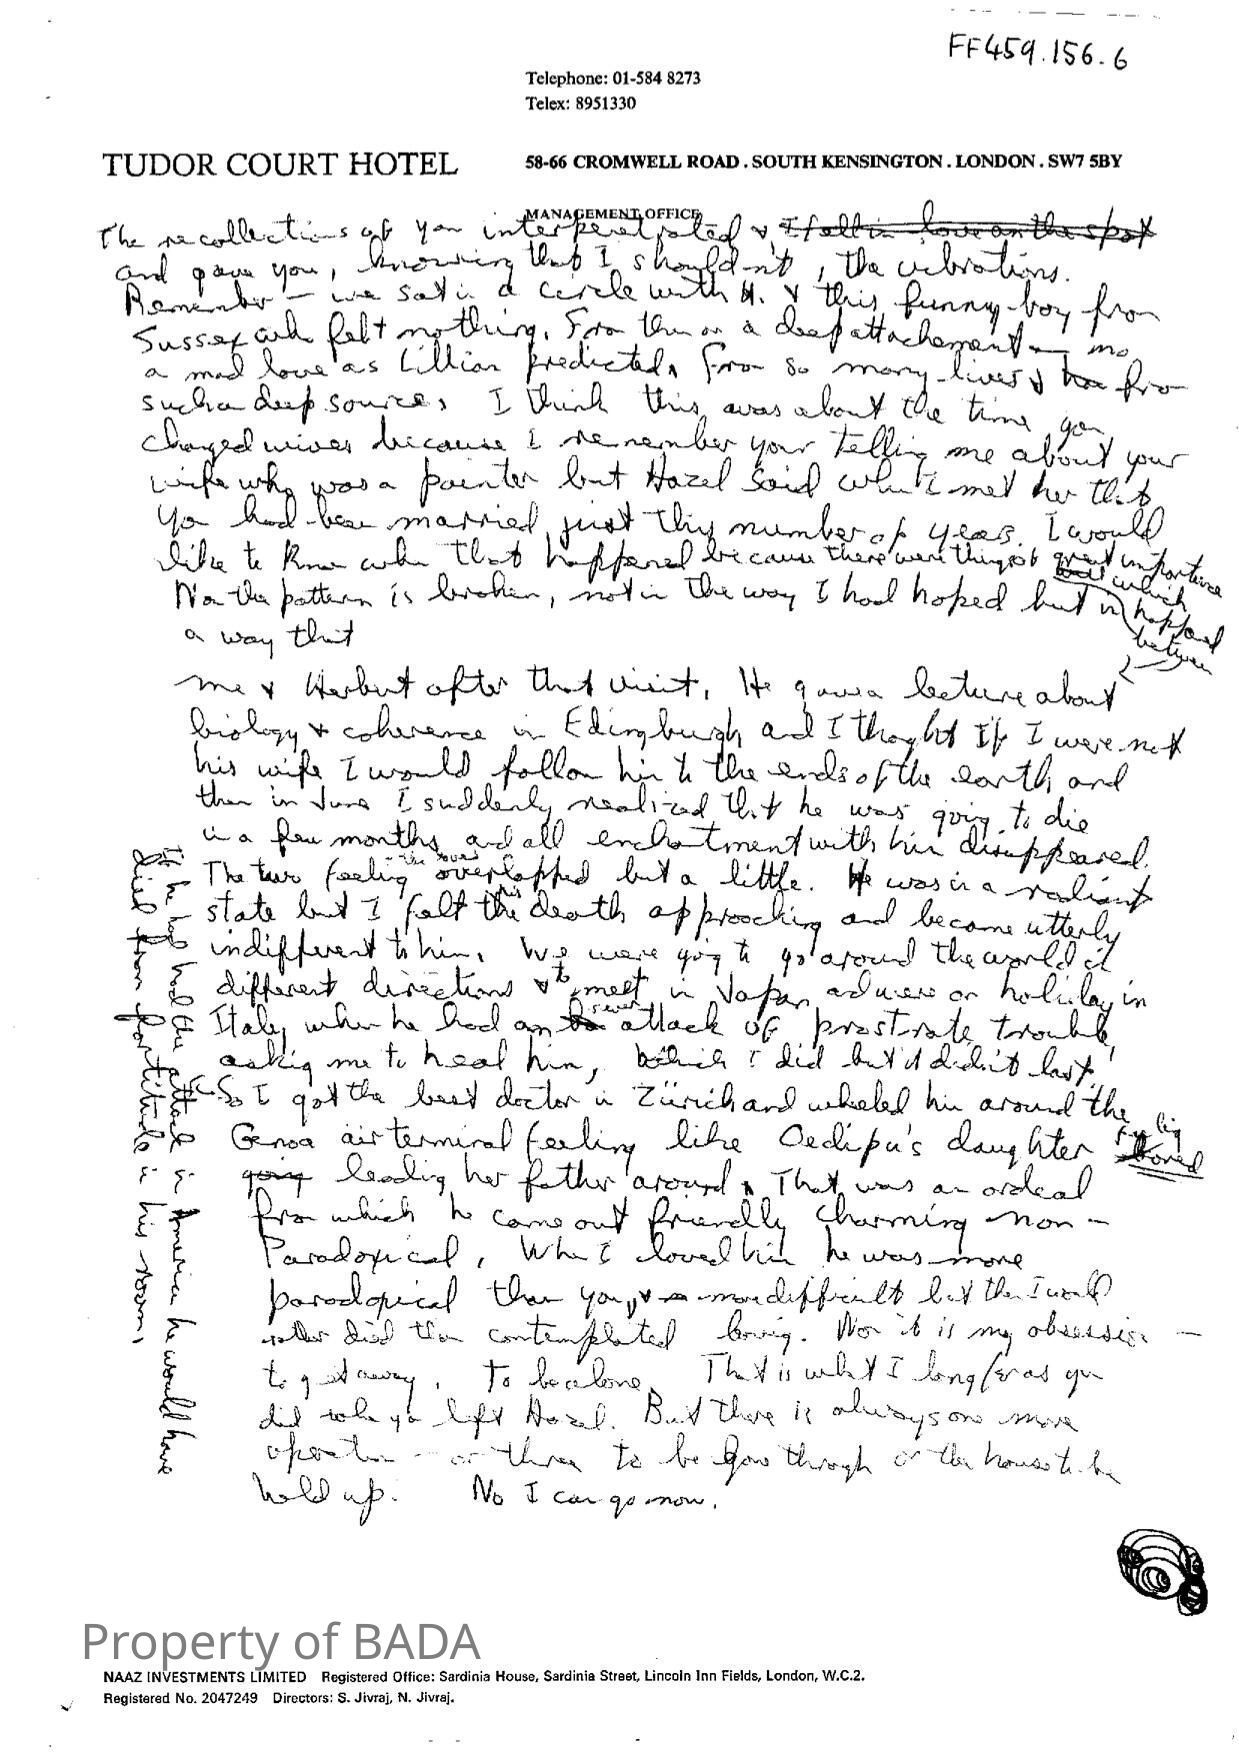 FF459.156.6
Telephone: 01-584 8273
Telex: 8951330
TUDOR COURT HOTEL
58-66 CROMWELL ROAD . SOUTH KENSINGTON . LONDON . SW7 5BY
MANAGEMENT OFFICE
The recollections of you interpenetrated & I fell in love on the spot
and gave you, knowing that I shouldn't, the vibrations.
Remember – we sat in a circle with H. & this funny boy from
Sussex who felt nothing. From then on a deep attachement – no
a mad love as Lillian predicted, from so many lives & from
such a deep source. I think this was about the time you
changed wives because I remember your telling me about your
wife who was a painter but Hazel said when I met her that
you had been married just this number of years. I would
like to know when that happened because there were things of great importance
which
happened
between
Now the pattern is broken, not in the way I had hoped but in
a way that
me & Herbert after that visit. He gave a lecture about
biology & coherence in Edingburgh and I thought If I were not
his wife I would follow him to the ends of the earth and
then in June I suddenly realized that he was going to die
in a few months and all enchantment with him disappeared.
The two feeling overlapped but a little. He was in a radiant
state but I felt this death approaching and became utterly
indifferent to him. We were going to go around the world in
different directions & to meet in Japan and were on holiday in
Italy when he had a severe attack of prostrate trouble,
asking me to heal him, which I did but it didn't last.
So I got the best doctor in Zürich and wheeled him around the
Genoa air terminal feeling like Oedipu's daughter
going leading her father around. That was an ordeal
from which he came out friendly charming non-
Paradoxical. When I loved him he was more
paradoxical than you, & more difficult but then I would
rather died than contemplated leaving. Now it is my obsession –
to get away. To be alone. That is what I long for as you
did when you left Hazel. But there is always one more
operation – or three to be gone through or the house to be
held up. No I can go now.
If he had had the attack in America he would have
died from fortitude in his room.
Property of BADA
NAAZ INVESTMENTS LIMITED Registered Office: Sardinia House, Sardinia Street, Lincoln Inn Fields, London, W.C.2.
Registered No. 2047249 Directors: S. Jivraj, N. Jivraj.